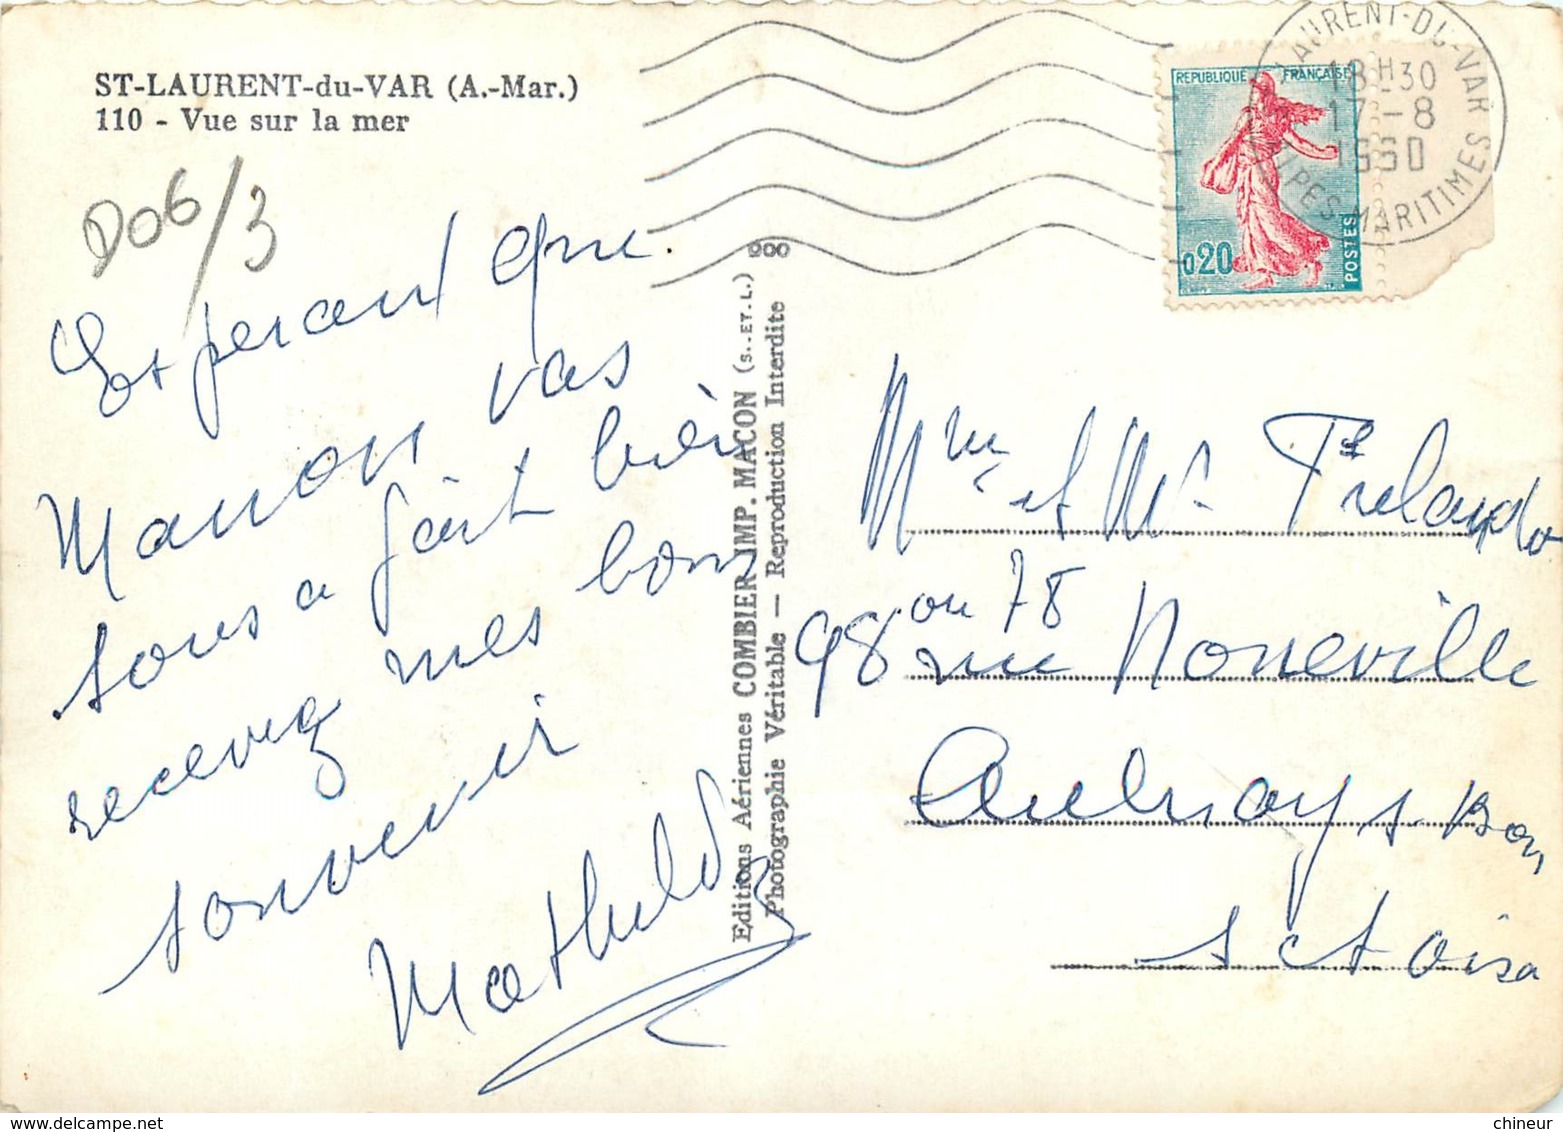 ST-LAURENT-du-VAR (A.-Mar.)
110 - Vue sur la mer
D06/3
Esperant que
Manon vas
sous a fait bien
recevez mes bons
souvenir
Mathilde
Editions Aériennes COMBIER IMP. MACON (S.-ET-L.)
Photographie Véritable — Reproduction Interdite
200
REPUBLIQUE FRANÇAISE
0.20
POSTES
LAURENT-DU-VAR
18H30
17-8
1960
ALPES MARITIMES
Mme et Mr
ou 78
98 rue Noneville
Aulnay s. Bon
s et oise
chineur